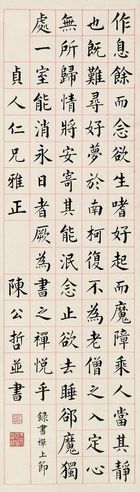 作息餘而念慾生於好惡起而魔障乘人當其靜
也既難尋好夢於南柯復不為老僧之入定心
無所歸情將安寄其能泯念止欲去睡郤魔獨
處一室能消永日者厥為書之禪悅乎 錄書禪上節
貞人仁兄雅正 陳公哲並書